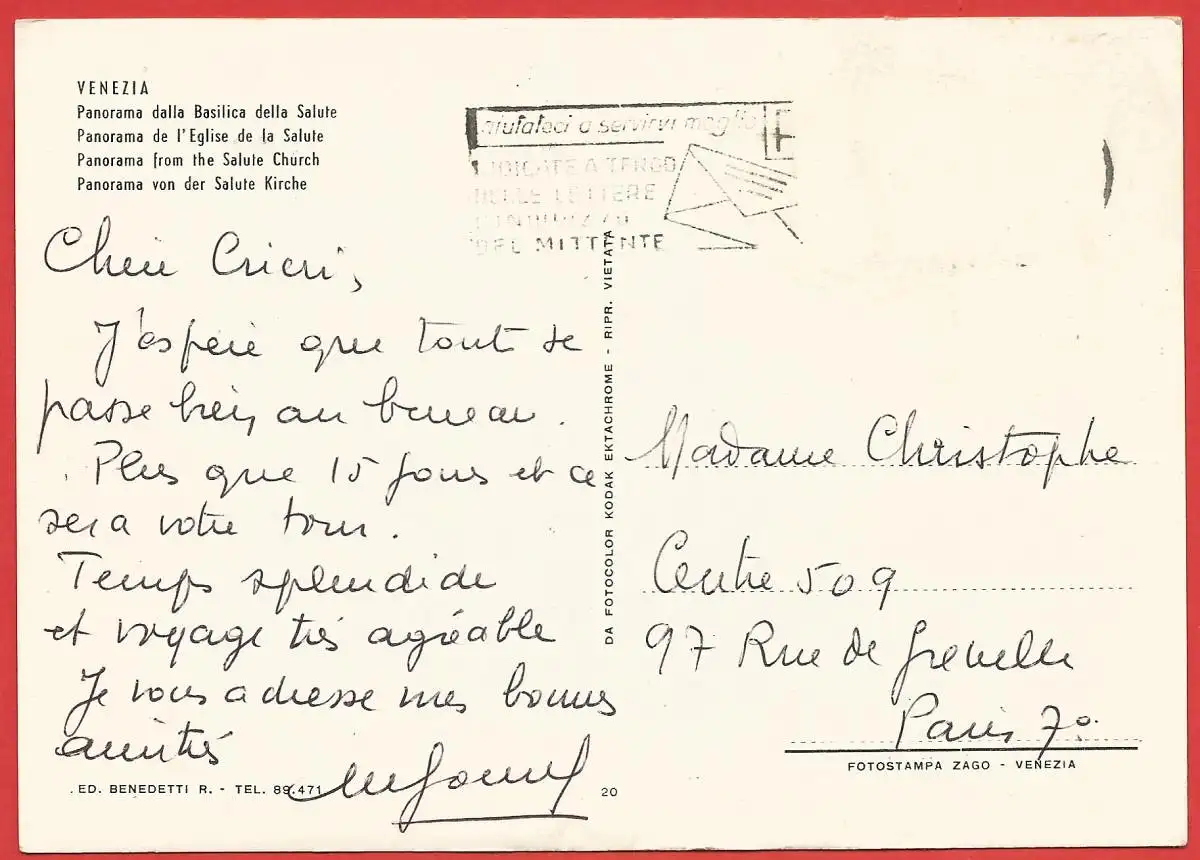 VENEZIA
Panorama dalla Basilica della Salute
Panorama de l'Eglise de la Salute
Panorama from the Salute Church
Panorama von der Salute Kirche
aiutateci a servirvi meglio
INDICATE A TERGO
DELLE LETTERE
L'INDIRIZZO
DEL MITTENTE
Chère Cricri,
J'espère que tout se
passe bien au bureau.
Plus que 15 jours et ce
sera votre tour.
Temps splendide
et voyage très agréable
Je vous adresse mes bonnes
amitiés
DA FOTOCOLOR KODAK EKTACHROME - RIPR. VIETATA
Madame Christophe
Centre 509
97 Rue de Grenelle
Paris 7e
FOTOSTAMPA ZAGO - VENEZIA
. ED. BENEDETTI R. - TEL. 89.471
20